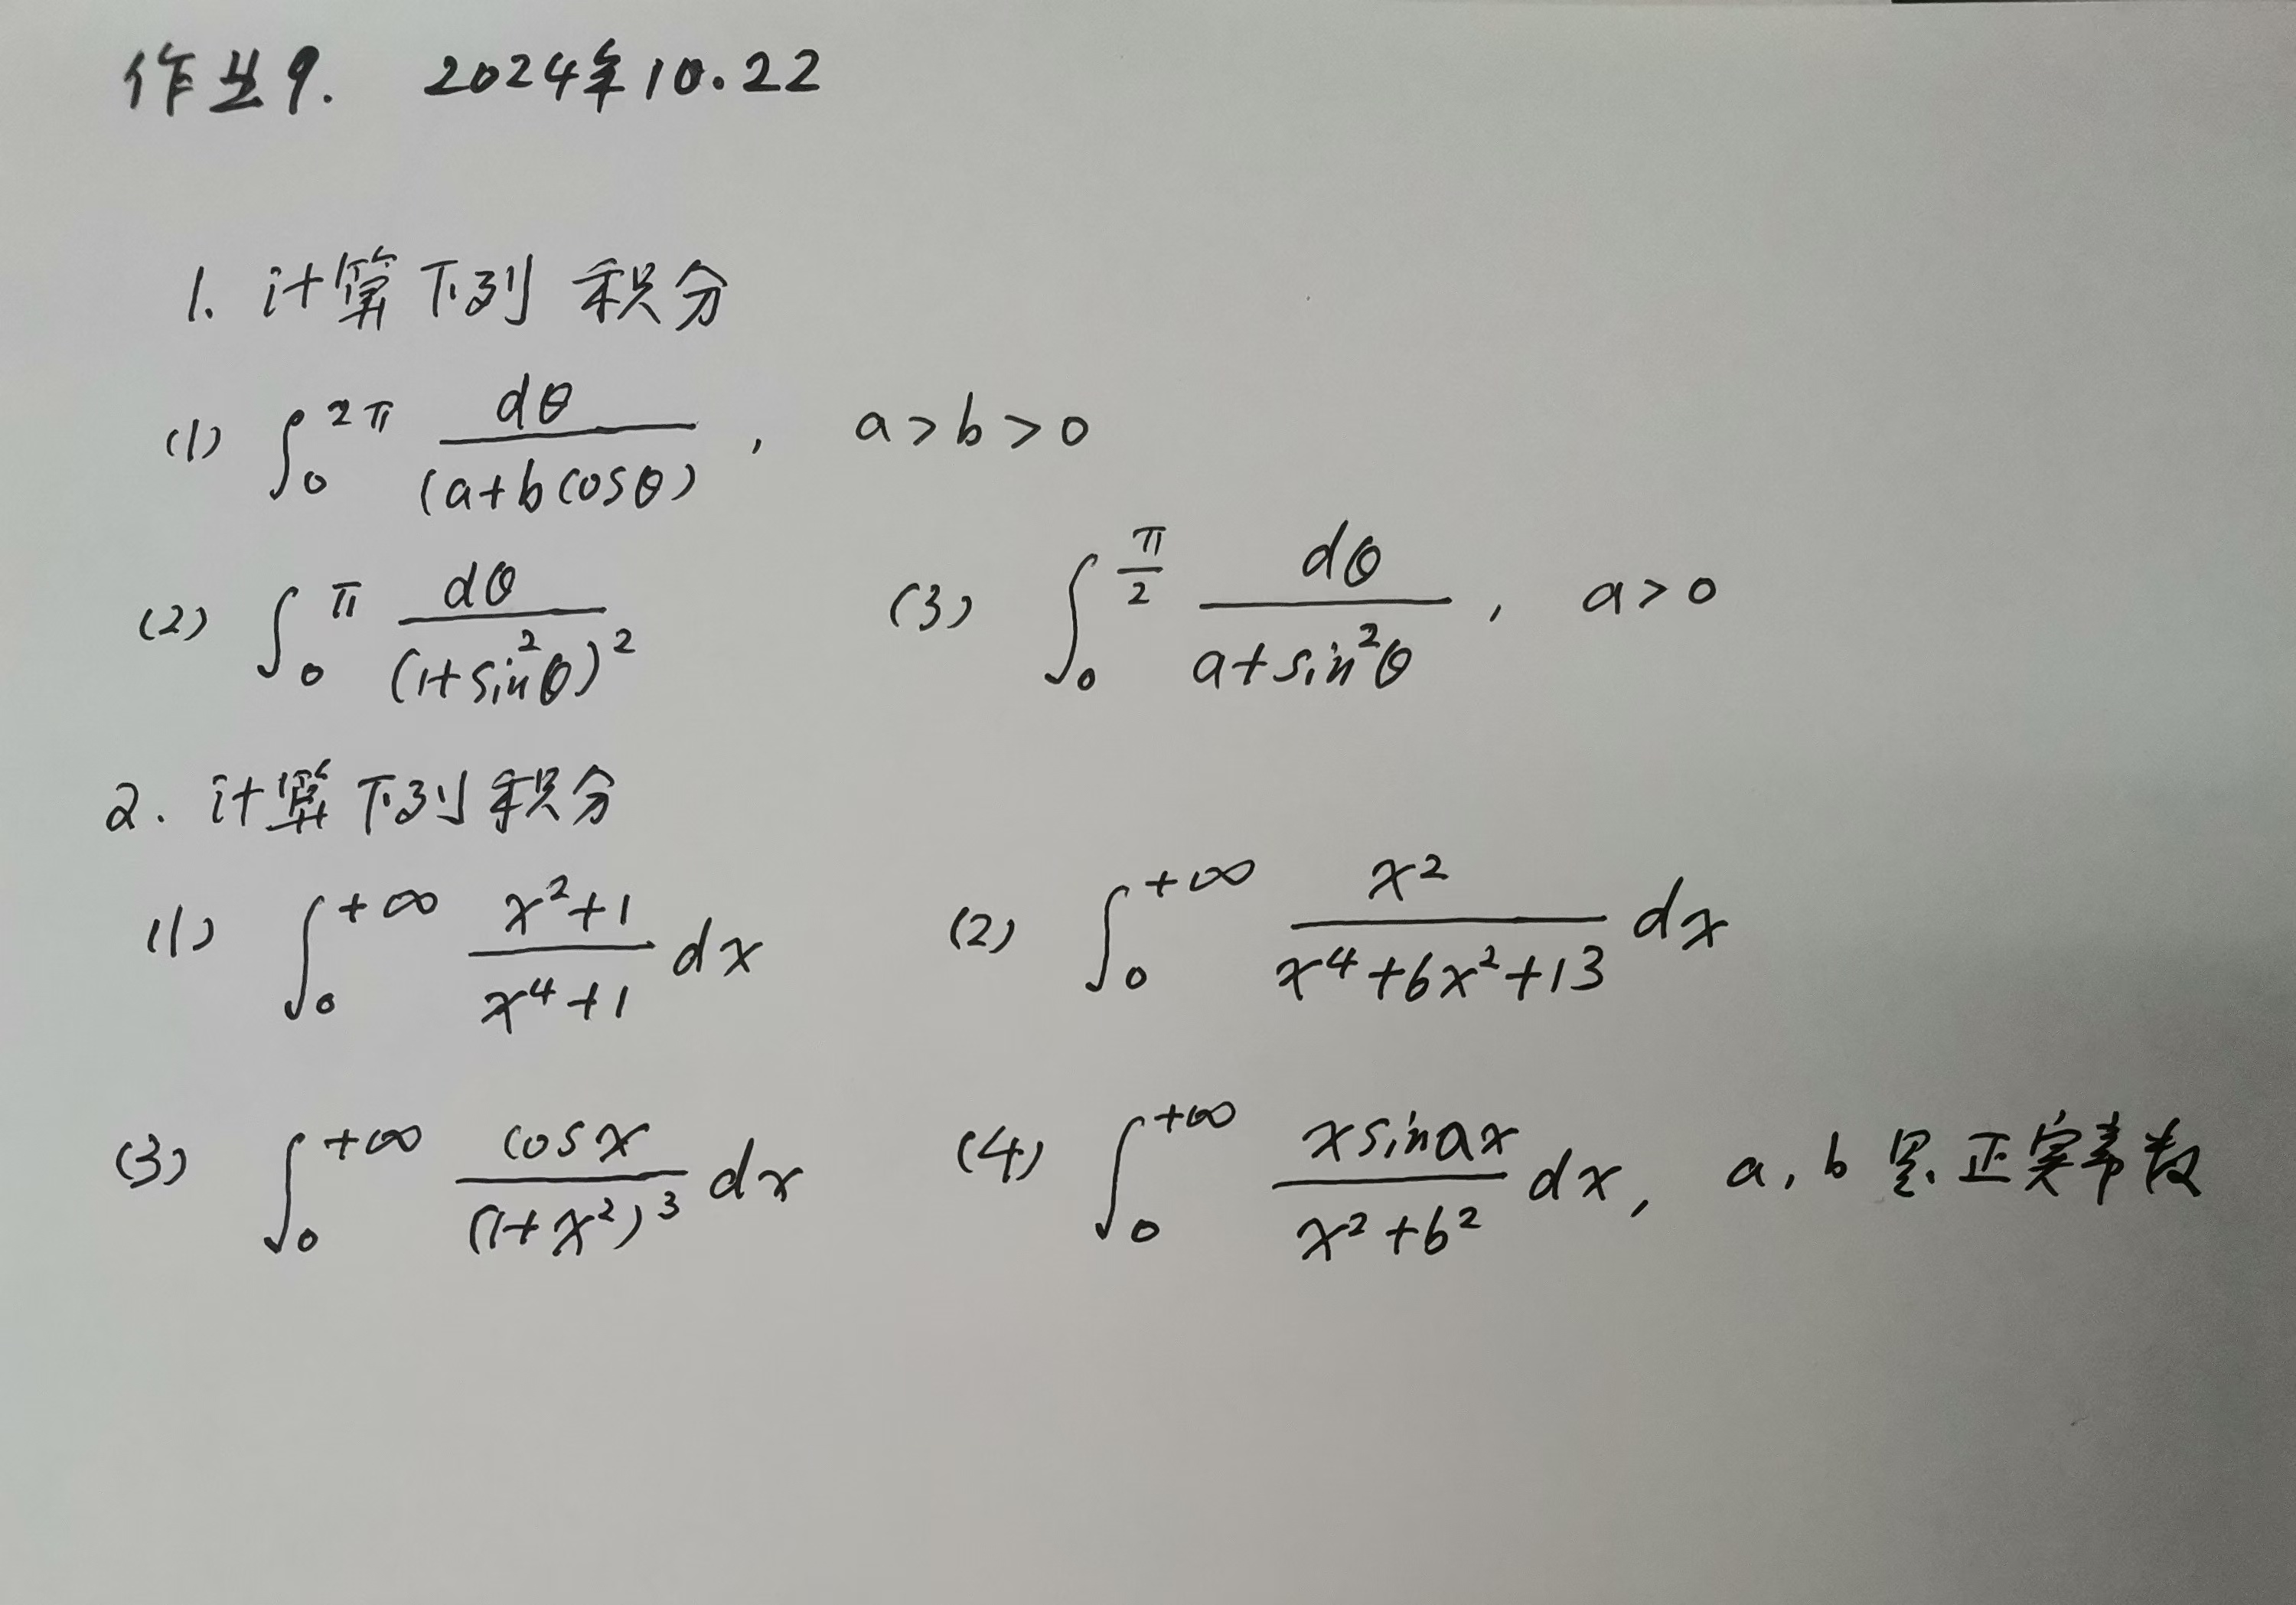 作业9. 2024年10.22
1. 计算下列积分
(1) ∫₀^{2π} dθ/(a+bcosθ), a>b>0
(2) ∫₀^{π} dθ/(1+sin²θ)² (3) ∫₀^{π/2} dθ/(a+sin²θ), a>0
2. 计算下列积分
(1) ∫₀^{+∞} (x²+1)/(x⁴+1) dx (2) ∫₀^{+∞} x²/(x⁴+6x²+13) dx
(3) ∫₀^{+∞} cosx/(1+x²)³ dx (4) ∫₀^{+∞} xsinax/(x²+b²) dx, a, b 是正实常数